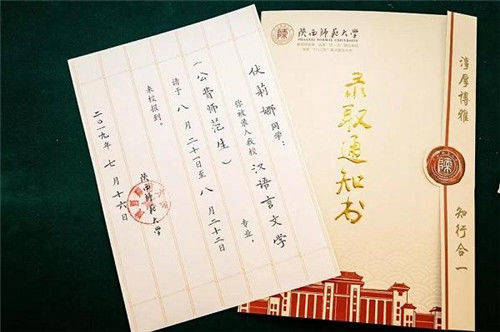 伏莉娜同学：
你被录入我校汉语言文学
（公费师范生）专业，
请于八月二十一日至八月二十二日
来校报到。
陕西师范大学
二〇一九年七月十六日
陕西师范大学
SHAANXI NORMAL UNIVERSITY
录取通知书
淳厚博雅
知行合一